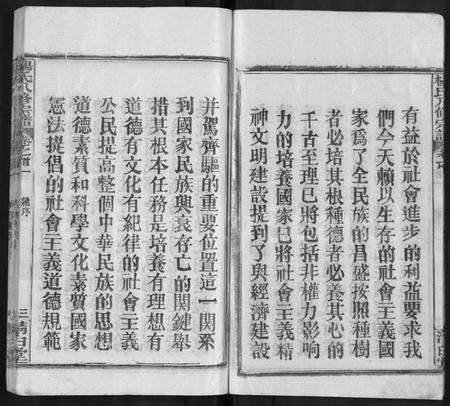 有益於社會進步的利益要求我
們今天賴以生存的社會主義國
家爲了全民族的昌盛按照種樹
者必培其根種德者必養其心的
千古至理已將包括非權力影响
力的培養國家已將社會主義精
神文明建設提到了與經濟建設
并駕齊驅的重要位置這一関系
到國家民族興衰存亡的関鍵舉
措其根本任務是培養有理想有
道德有文化有紀律的社會主義
公民提高整個中華民族的思想
道德素質和科學文化素質國家
憲法提倡的社會主義道德規範
楊氏八修宗譜 卷首一 總序 三 清白堂